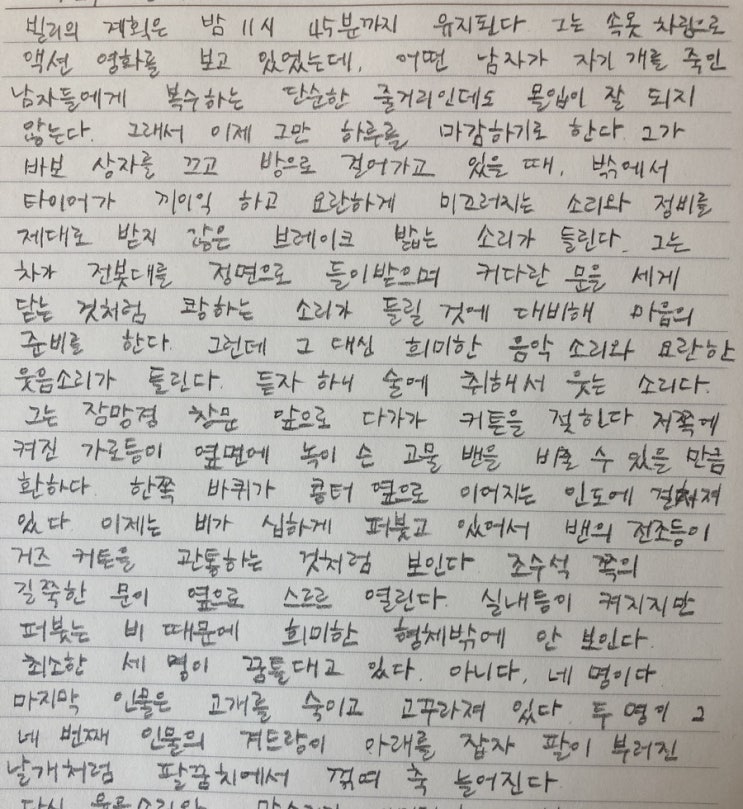 빌리의 계획은 밤 11시 45분까지 유지된다. 그는 속옷 차림으로
액션 영화를 보고 있었는데, 어떤 남자가 자기 개를 죽인
남자들에게 복수하는 단순한 줄거리인데도 몰입이 잘 되지
않는다. 그래서 이제 그만 하루를 마감하기로 한다. 그가
바보 상자를 끄고 방으로 걸어가고 있을 때, 밖에서
타이어가 끼이익 하고 요란하게 미끄러지는 소리와 정비를
제대로 받지 않은 브레이크 밟는 소리가 들린다. 그는
차가 전봇대를 정면으로 들이받으며 커다란 문을 세게
닫는 것처럼 쾅하는 소리가 들릴 것에 대비해 마음의
준비를 한다. 그런데 그 대신 희미한 음악 소리와 요란한
웃음소리가 들린다. 듣자 하니 술에 취해서 웃는 소리다.
그는 잠망경 창문 앞으로 다가가 커튼을 젖힌다 저쪽에
켜진 가로등이 옆면에 녹이 슨 고물 밴을 비출 수 있을 만큼
환하다 한쪽 바퀴가 공터 옆으로 이어지는 인도에 걸쳐져
있다 이제는 비가 심하게 퍼붓고 있어서 밴의 전조등이
거즈 커튼을 관통하는 것처럼 보인다 조수석 쪽의
길쭉한 문이 옆으로 스르르 열린다. 실내등이 켜지지만
퍼붓는 비 때문에 희미한 형체밖에 안 보인다.
최소한 세 명이 꿈틀대고 있다. 아니다, 네 명이다
마지막 인물은 고개를 숙이고 고꾸라져 있다. 두 명이 그
네 번째 인물의 겨드랑이 아래를 잡자 팔이 부러진
날개처럼 팔꿈치에서 꺾여 축 늘어진다.